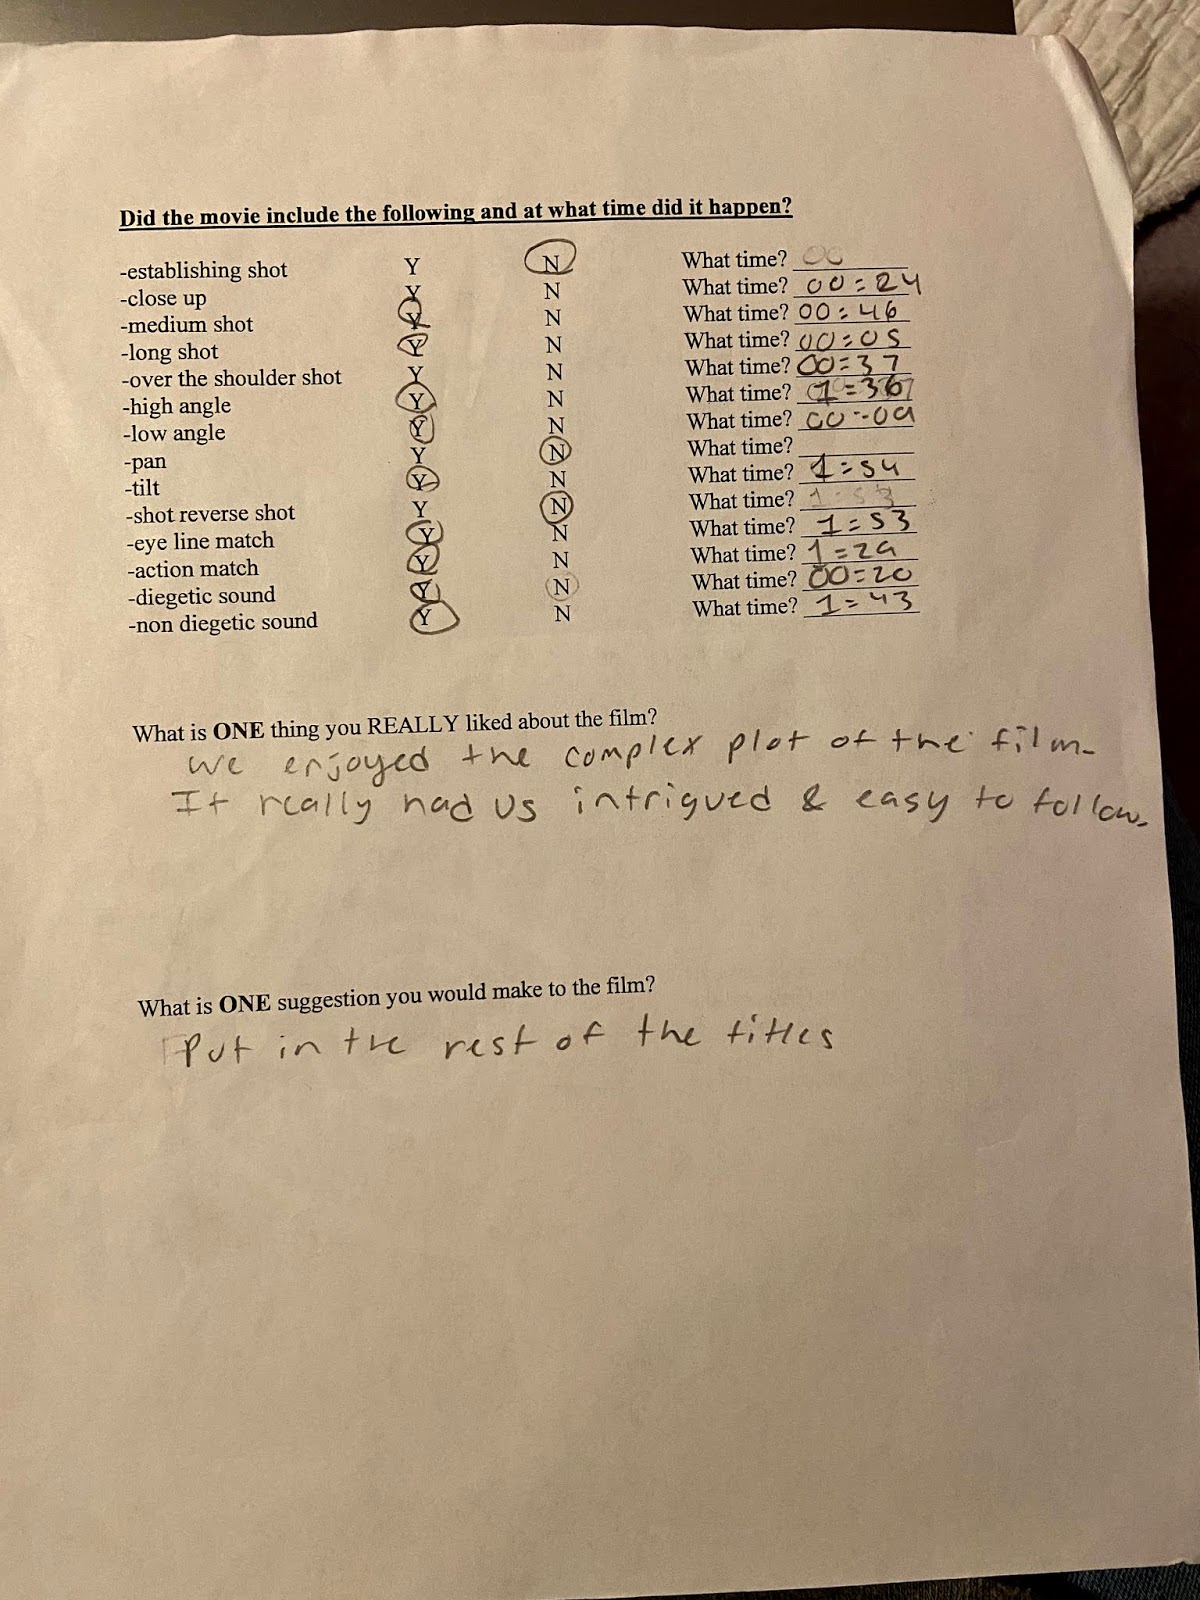 Did the movie include the following and at what time did it happen?
-establishing shot Y N What time? 00
-close up Y N What time? 00:24
-medium shot Y N What time? 00:46
-long shot Y N What time? 00:05
-over the shoulder shot Y N What time? 00:37
-high angle Y N What time? 1:36
-low angle Y N What time? 00:09
-pan Y N What time?
-tilt Y N What time? 1:54
-shot reverse shot Y N What time? 1:53
-eye line match Y N What time? 1:53
-action match Y N What time? 1:29
-diegetic sound Y N What time? 00:20
-non diegetic sound Y N What time? 1:43
What is ONE thing you REALLY liked about the film?
We enjoyed the complex plot of the film.
It really had us intrigued & easy to follow.
What is ONE suggestion you would make to the film?
Put in the rest of the titles